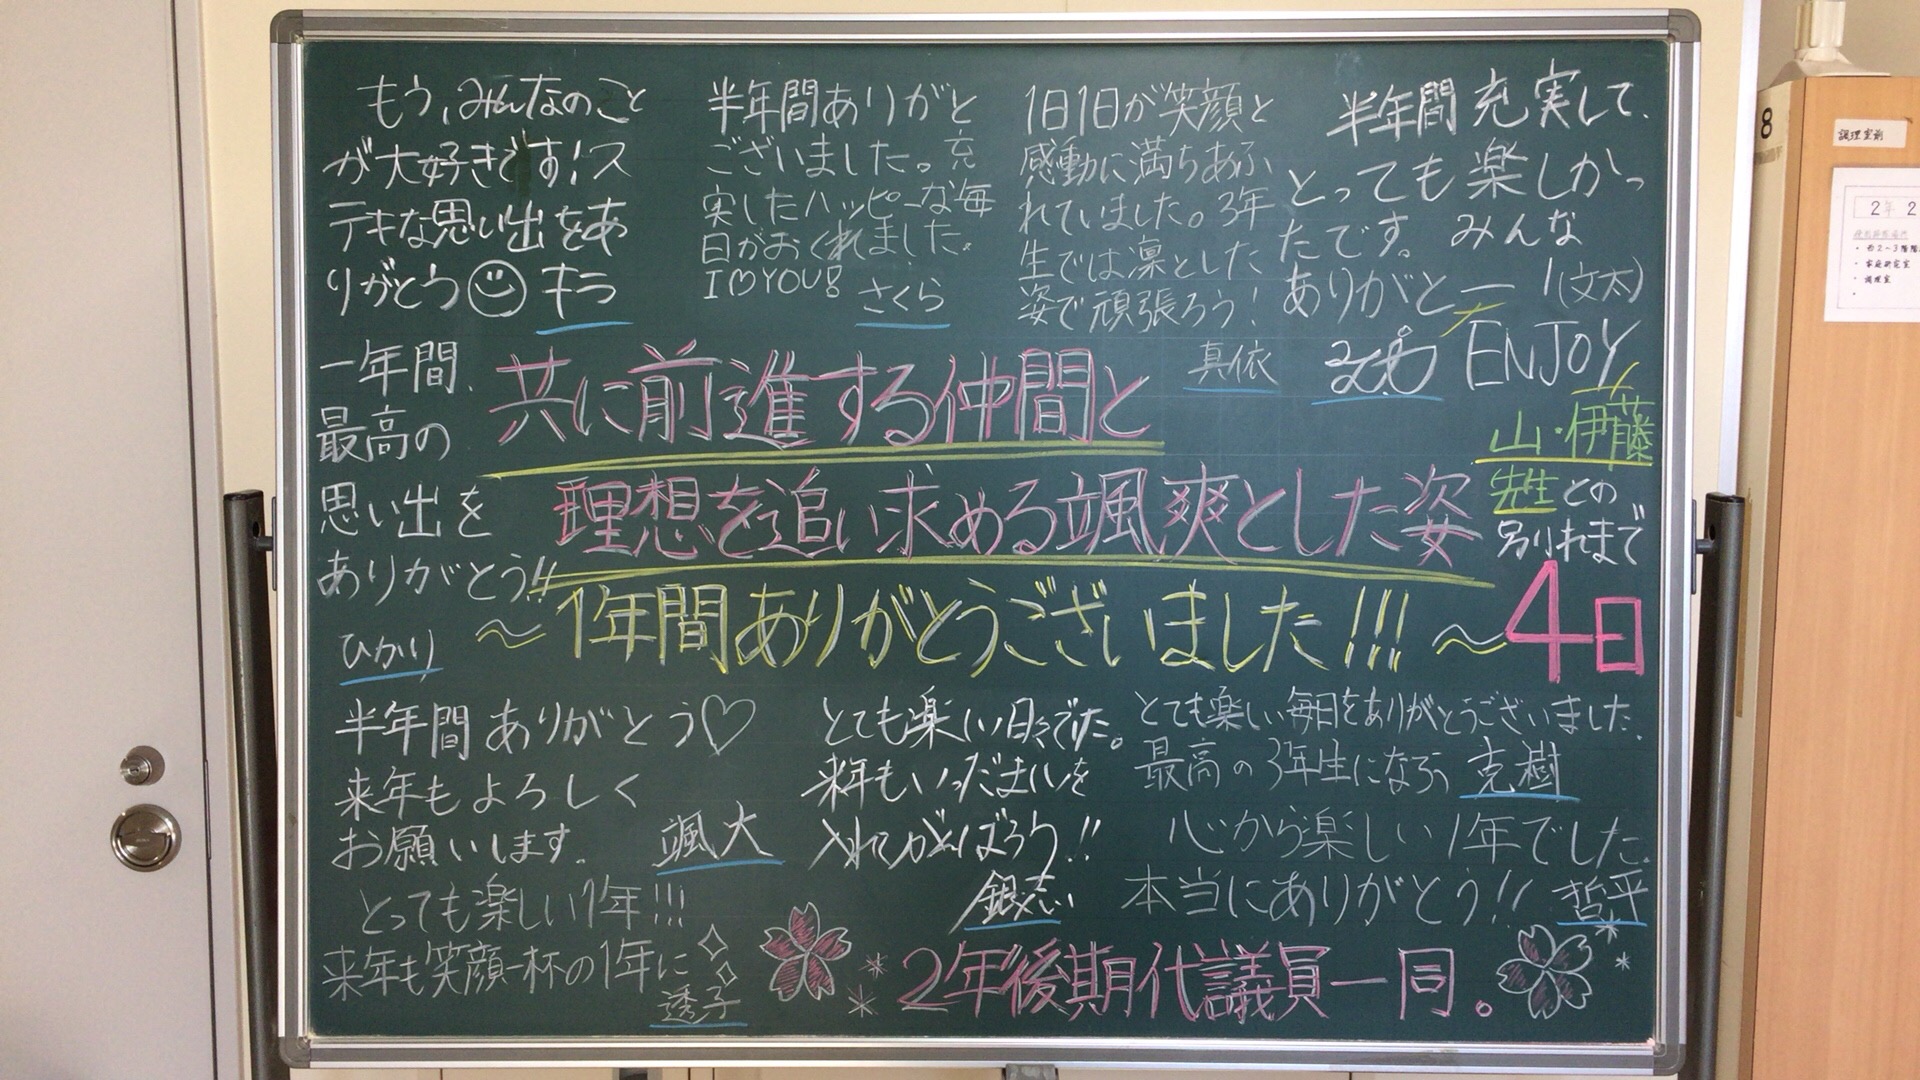 もう、みんなのこと
が大好きです!ス
テキな思い出をあ
りがとう キラ
半年間ありがと
ございました。充
実したハッピーな毎
日がおくれました。
I♡YOU!
さくら
1日1日が笑顔と
感動に満ちあふ
れていました。3年
生では凛とした
姿で頑張ろう!
真依
半年間充実して、
とっても楽しかっ
たです。みんな
ありがとー
ENJOY
(文太)
一年間、
最高の
思い出を
ありがとう!!
ひかり
共に前進する仲間と
理想を追い求める颯爽とした姿
〜1年間ありがとうございました!!!〜
山・伊藤
先生との
別れまで
4日
半年間ありがとう♡
来年もよろしく
お願いします。
颯大
とても楽しい日々でした。
来年もいっだまいを
入れてがんばろう!!
銀志
とても楽しい毎日をありがとうございました。
最高の3年生になろう 克樹
心から楽しい1年でした。
本当にありがとう!! 哲平
とっても楽しい1年!!!
来年も笑顔一杯の1年に
透子
2年後期代議員一同。
8
調理室前
2年2
・西2〜3階階
・家庭研究室
・調理室